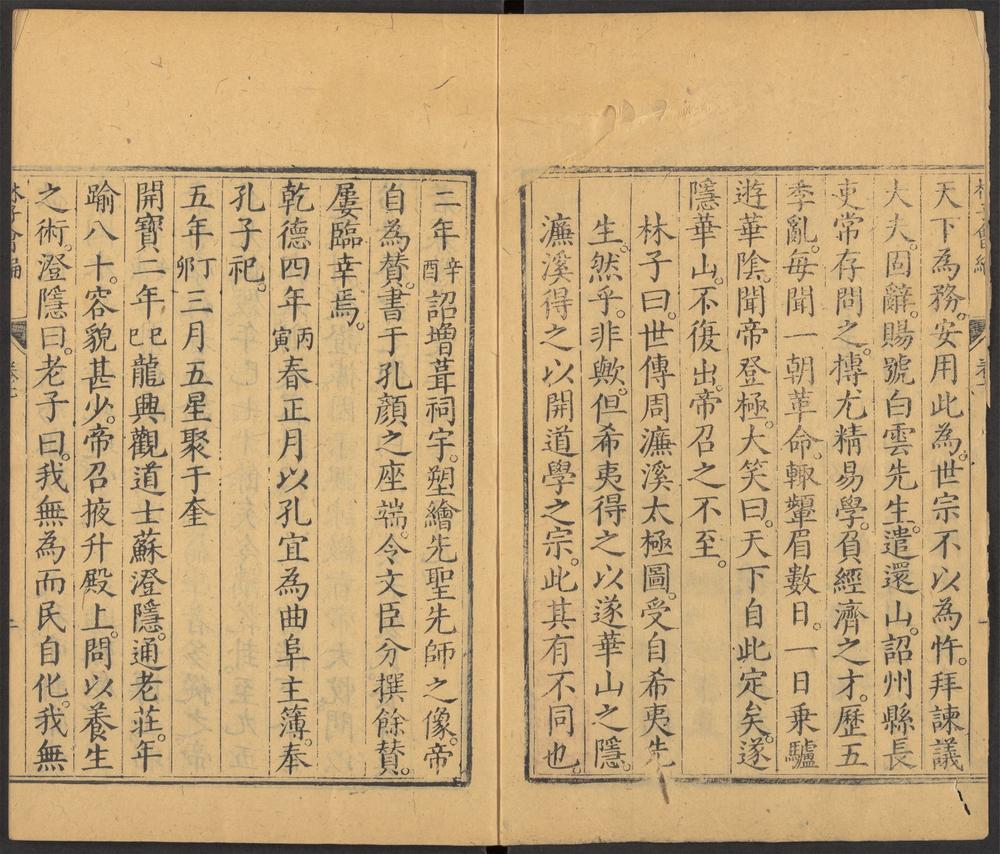 天下為務。安用此為。世宗不以為忤。拜諫議
大夫。固辭。賜號白雲先生。遣還山。詔州縣長
吏常存問之。摶尤精易學。負經濟之才。歷五
季亂。每聞一朝革命。輒顰眉數日。一日乗驢
遊華陰。聞帝登極。大笑曰。天下自此定矣。遂
隱華山。不復出。帝召之不至。
林子曰。世傳周濂溪太極圖。受自希夷先
生。然乎。非歟。但希夷得之以遂華山之隱。
濂溪得之以開道學之宗。此其有不同也。
二年辛酉詔增葺祠宇。塑繪先聖先師之像。帝
自為賛。書于孔顏之座端。令文臣分撰餘賛。
屢臨幸焉。
乾德四年丙寅春正月以孔宜為曲阜主簿。奉
孔子祀。
五年丁卯三月五星聚于奎
開寶二年己巳龍興觀道士蘇澄隱。通老莊。年
踰八十。容貌甚少。帝召掖升殿上。問以養生
之術。澄隱曰。老子曰。我無為而民自化。我無
林子會編